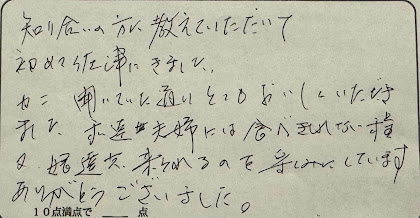 知り合いの方に教えていただいて
初めて佐津にきました。
カニ 聞いていた通りとてもおいしくいただき
ました 私達夫婦には食べきれない量
又 来られるのを楽しみにしています
ありがとうございました。
10点満点で 点